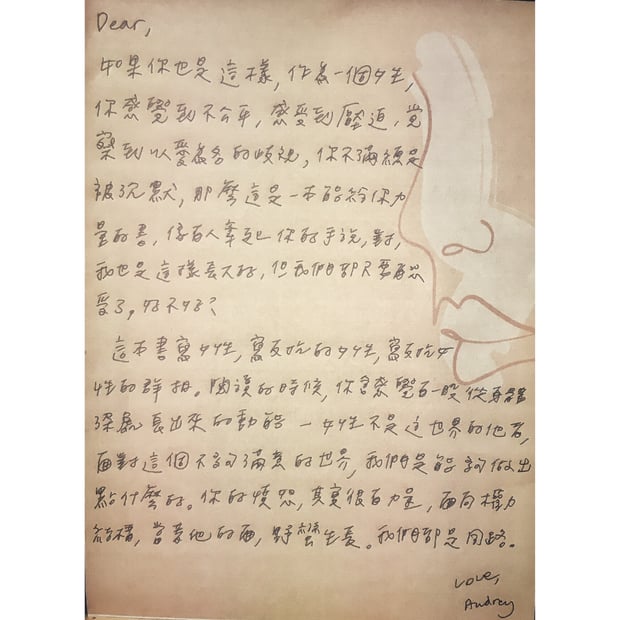 Dear,
如果你也是這樣,作為一個女生,
你感覺到不公平,感受到壓迫,覺
察到以愛為名的歧視,你不滿總是
被沉默,那麼這是一本能給你力
量的書,像有人牽起你的手說,對,
我也是這樣長大的,但我們都不要再忍
受了,好不好?
這本書寫女性,寫反抗的女性,寫反抗女
性的群相。閱讀的時候,你會感覺有一股從身體
深處長出來的動能—女性不是這世界的他者,
面對這個不夠滿意的世界,我們是能夠做出
點什麼的。你的憤怒,其實很有力量,面向權力
結構,當著他的面,野蠻生長。我們都是同路。
Love,
Audrey